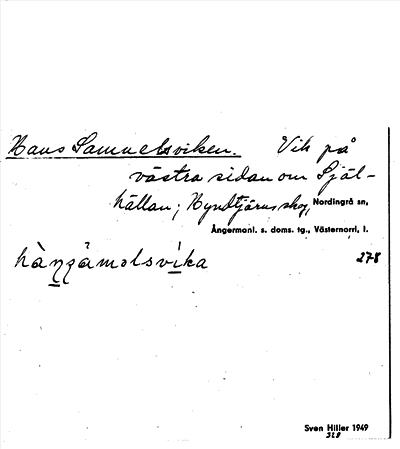 Hans Samuelsviken. Vik på
västra sidan om Själ-
hällan; Hyndtjärns skog, Nordingrå sn,
Ångermanl. s. doms. tg., Västernorrl, l.
278
Sven Hiller 1949
328